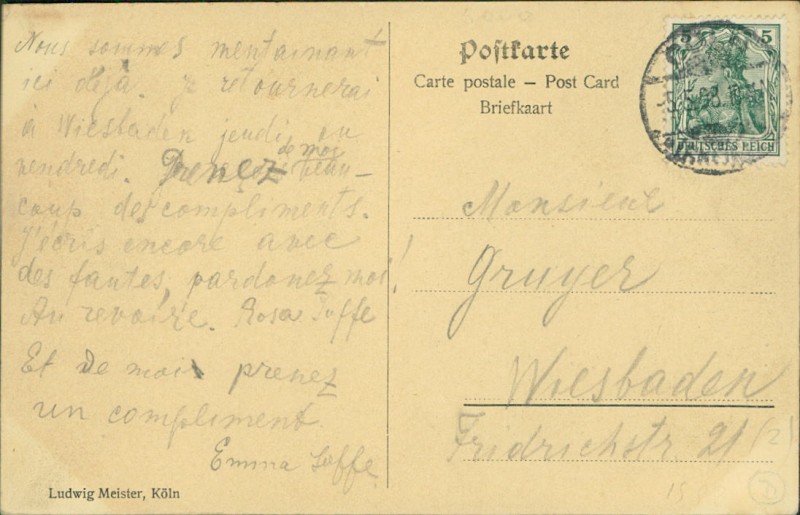 Nous sommes mentainant
ici déja. Je retournerai
à Wiesbaden jeudi ou
vendredi. Prenez de moi beau-
coup des compliments.
J'écris encore avec
des fautes, pardonez moi!
Au revoire. Rosa Joffe
Et de moi prenez
un compliment.
Emma Joffe
Ludwig Meister, Köln
Postkarte
Carte postale – Post Card
Briefkaart
5 5
DEUTSCHES REICH
Monsieur
Gruyer
Wiesbaden
Fridrichstr. 21 (2)